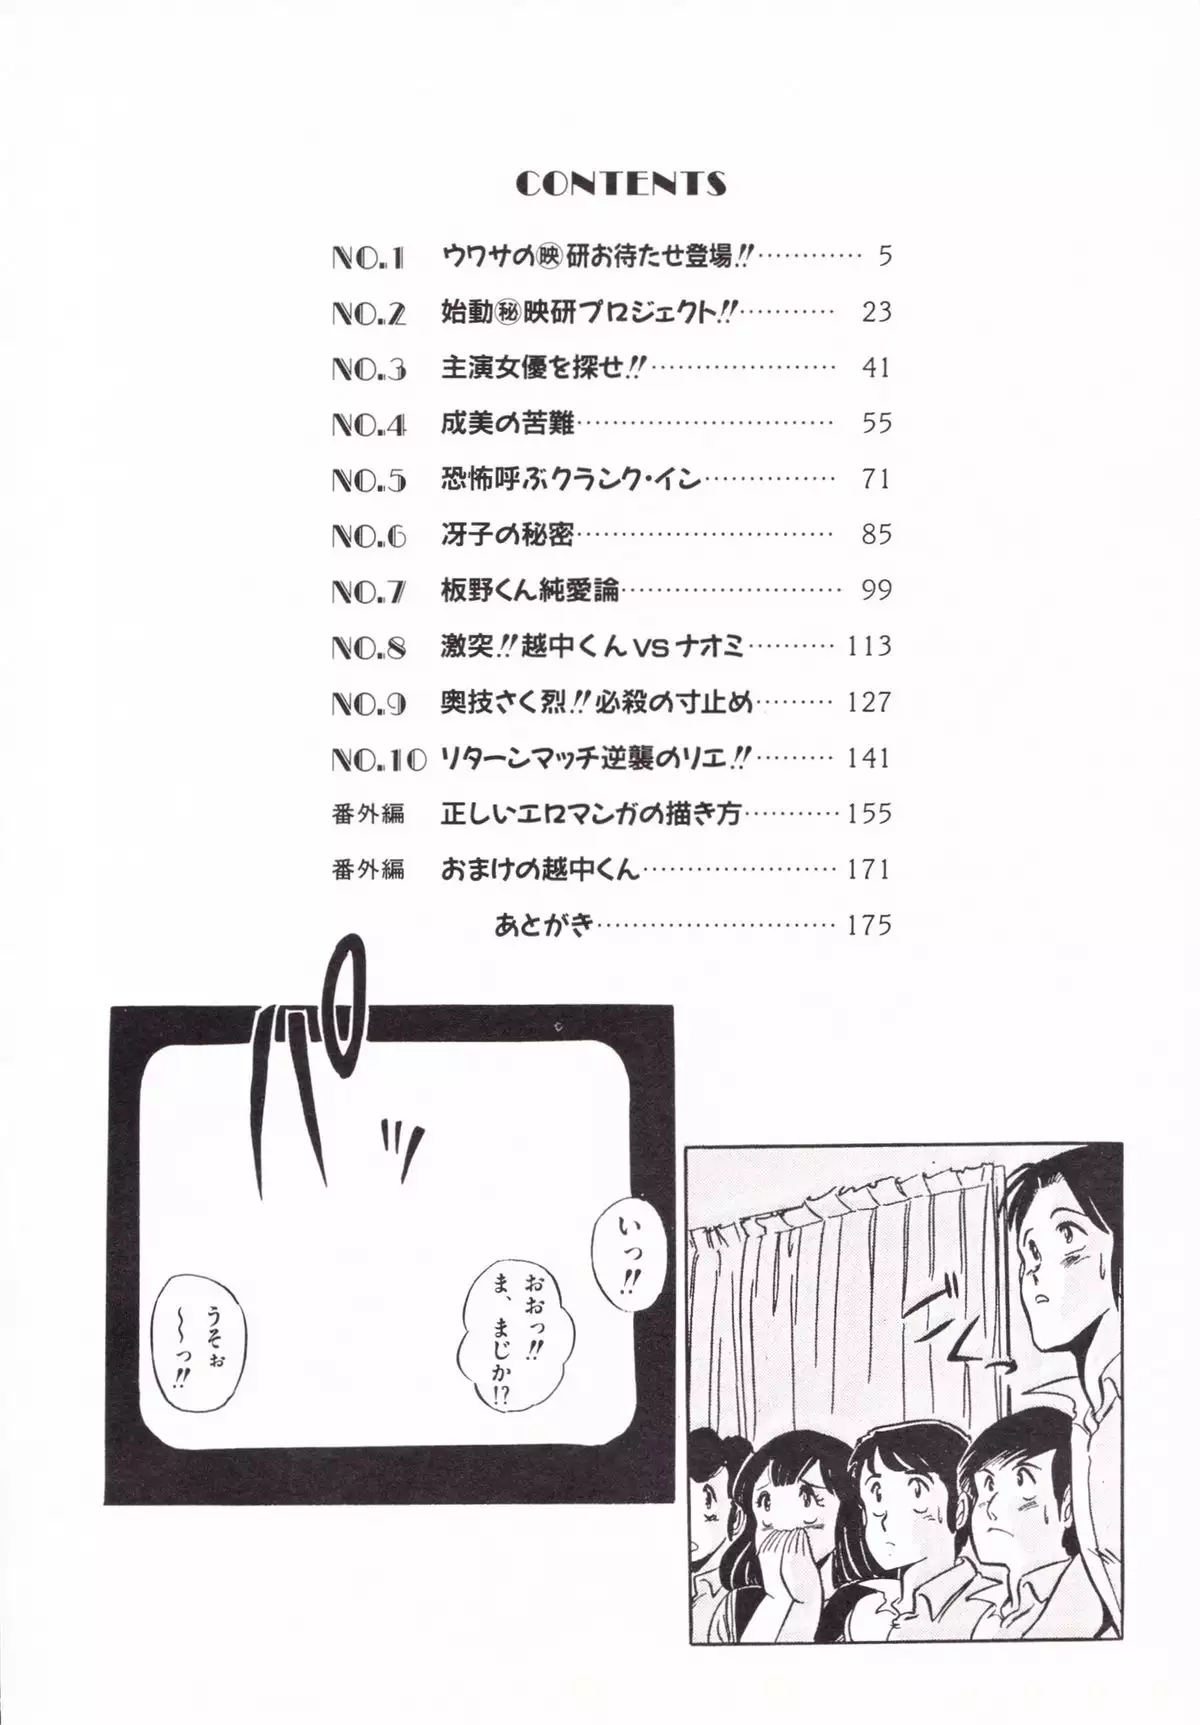 CONTENTS
NO.1 ウワサの㊙研お待たせ登場!!………… 5
NO.2 始動㊙映研プロジェクト!!………… 23
NO.3 主演女優を探せ!!………………… 41
NO.4 成美の苦難………………………… 55
NO.5 恐怖呼ぶクランク・イン………… 71
NO.6 冴子の秘密………………………… 85
NO.7 板野くん純愛論…………………… 99
NO.8 激突!!越中くんvsナオミ………… 113
NO.9 奥技さく烈!!必殺の寸止め……… 127
NO.10 リターンマッチ逆襲のリエ!!……… 141
番外編 正しいエロマンガの描き方………… 155
番外編 おまけの越中くん………………… 171
あとがき……………………… 175
パ
いっ!!
おおっ!!
ま、まじか!?
うそぉ
〜っ!!